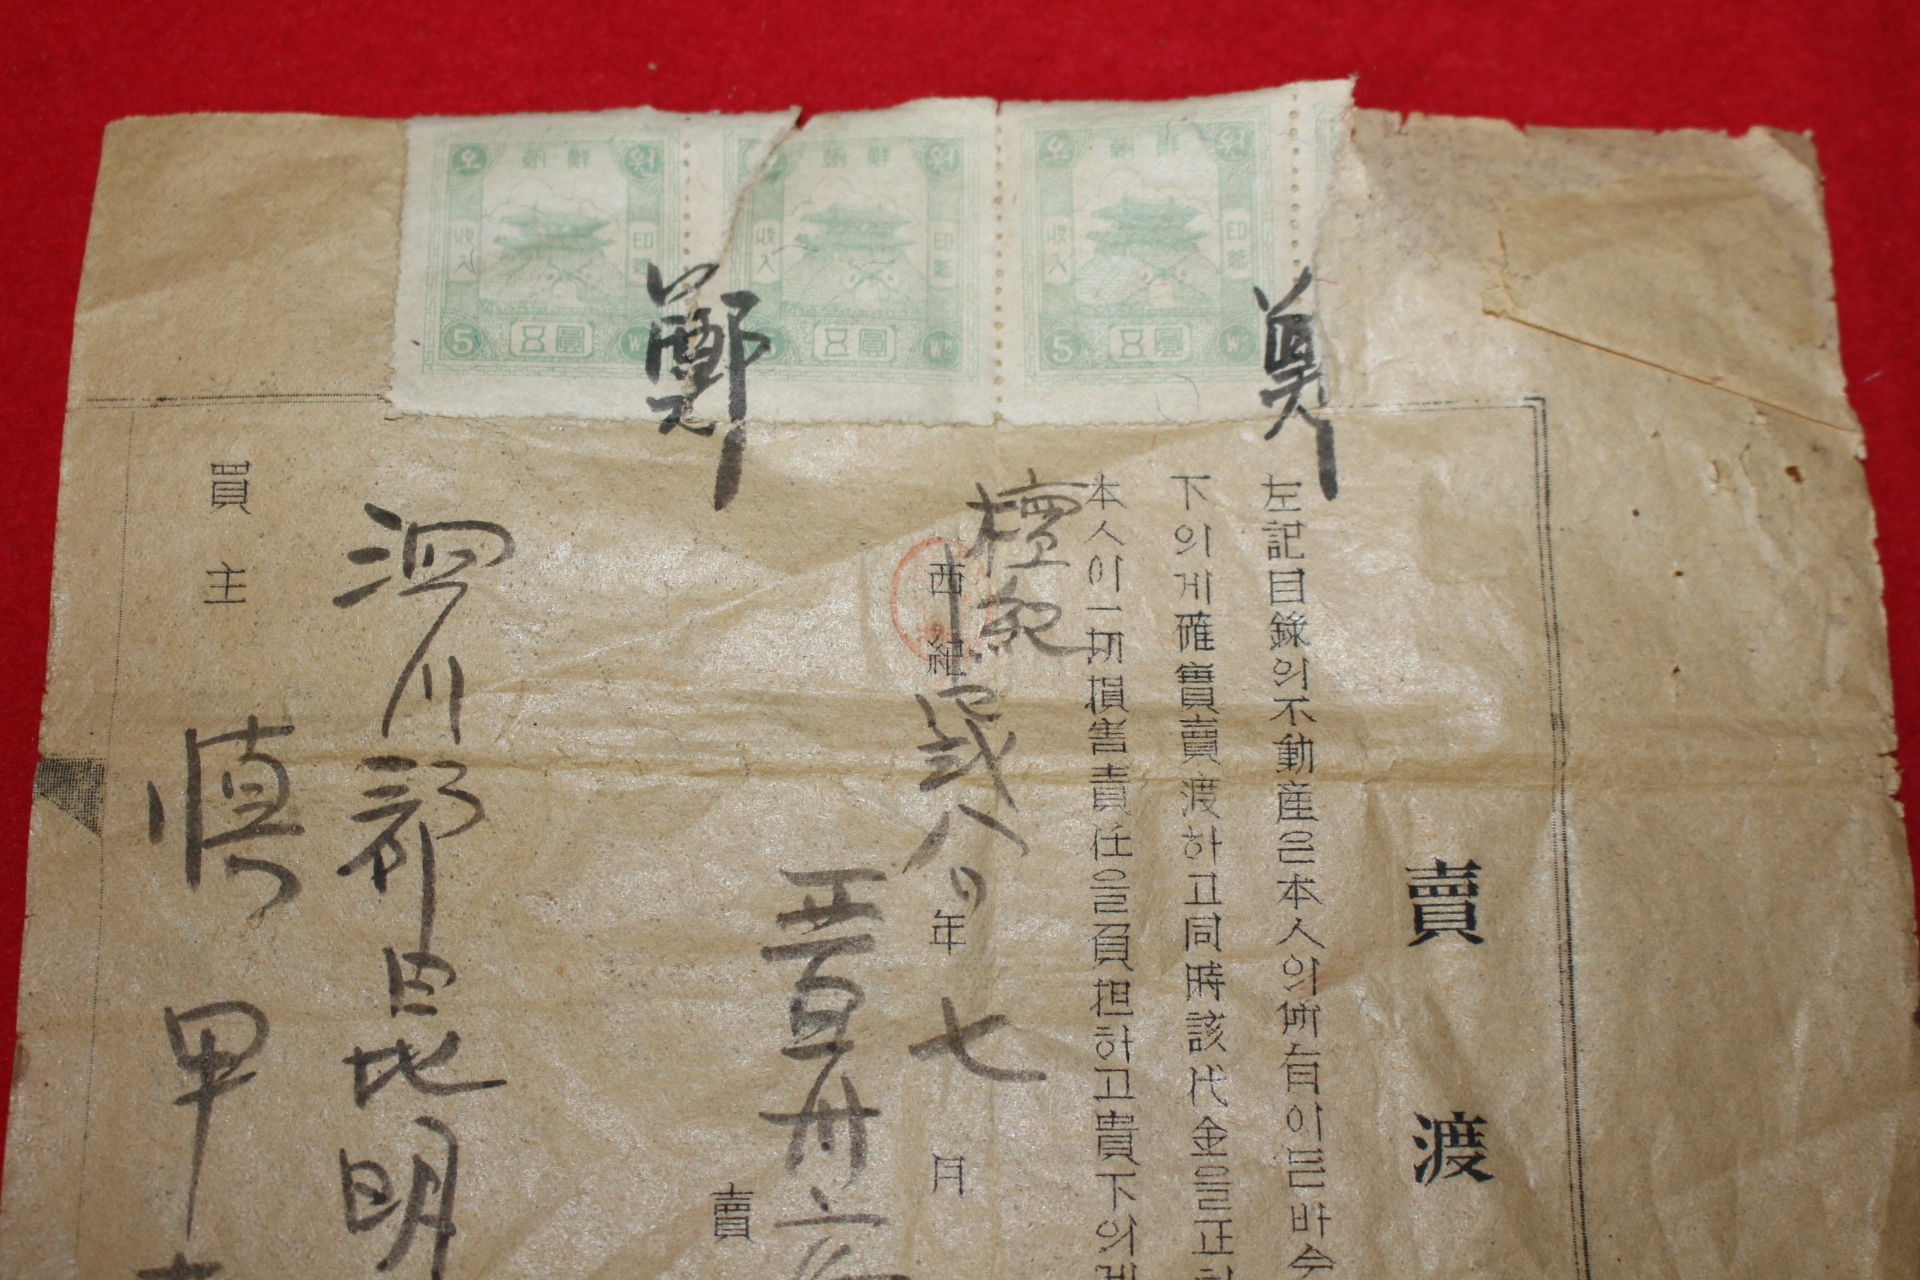 오 朝鮮 원
收入 印紙
5 五圓 Wn
오 朝鮮 원
收入 印紙
五圓 Wn
오 朝鮮 원
收入 印紙
5 五圓 W
鄭
賣渡
左記目錄의不動産은本人의所有이든바今
下의게確實賣渡하고同時該代金을正히
本人이一切損害責任을負担하고貴下의게
檀紀
西紀四貳八〇年七月
賣
泗川郡昆明
買主
愼甲